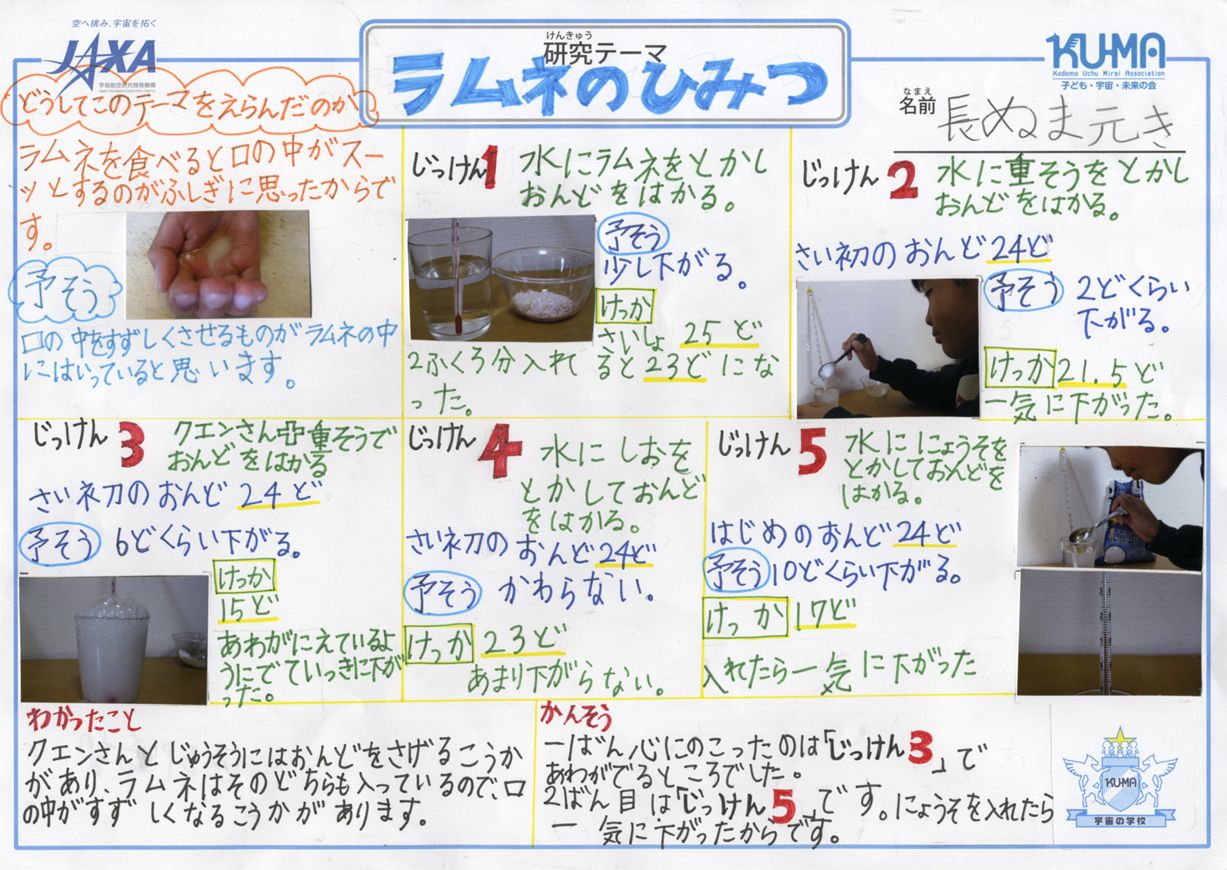 空へ挑み、宇宙を拓く
JAXA
宇宙航空研究開発機構
けんきゅう
研究テーマ
ラムネのひみつ
KU-MA
Kodomo Uchu Mirai Association
子ども・宇宙・未来の会
なまえ
名前
長ぬま元き
どうしてこのテーマをえらんだのか
ラムネを食べると口の中がスー
ッとするのがふしぎに思ったからで
す。
予そう
口の中をすずしくさせるものがラムネの中
にはいっていると思います。
じっけん1
水にラムネをとかし
おんどをはかる。
予そう
少し下がる。
けっか
さいしょ25ど
2ふくろ分入れると23どにな
った。
じっけん2
水に重そうをとかし
おんどをはかる。
さい初のおんど24ど
予そう 2どくらい
下がる。
けっか 21.5ど
一気に下がった。
じっけん3
クエンさん+重そうで
おんどをはかる
さい初のおんど24ど
予そう 6どくらい下がる。
けっか
15ど
あわがにえているよ
うにでていっきに下が
った。
じっけん4
水にしおを
とかしておんど
をはかる。
さい初のおんど24ど
予そう かわらない。
けっか 23ど
あまり下がらない。
じっけん5
水ににょうそを
とかしておんどを
はかる。
はじめのおんど24ど
予そう 10どくらい下がる。
けっか 17ど
入れたら一気に下がった
わかったこと
クエンさんとじゅうそうにはおんどをさげるこうか
があり、ラムネはそのどちらも入っているので、口
の中がすずしくなるこうかがあります。
かんそう
一ばん心にのこったのは「じっけん3」で
あわがでるところでした。
2ばん目は「じっけん5」です。にょうそを入れたら
一気に下がったからです。
KU-MA
宇宙の学校